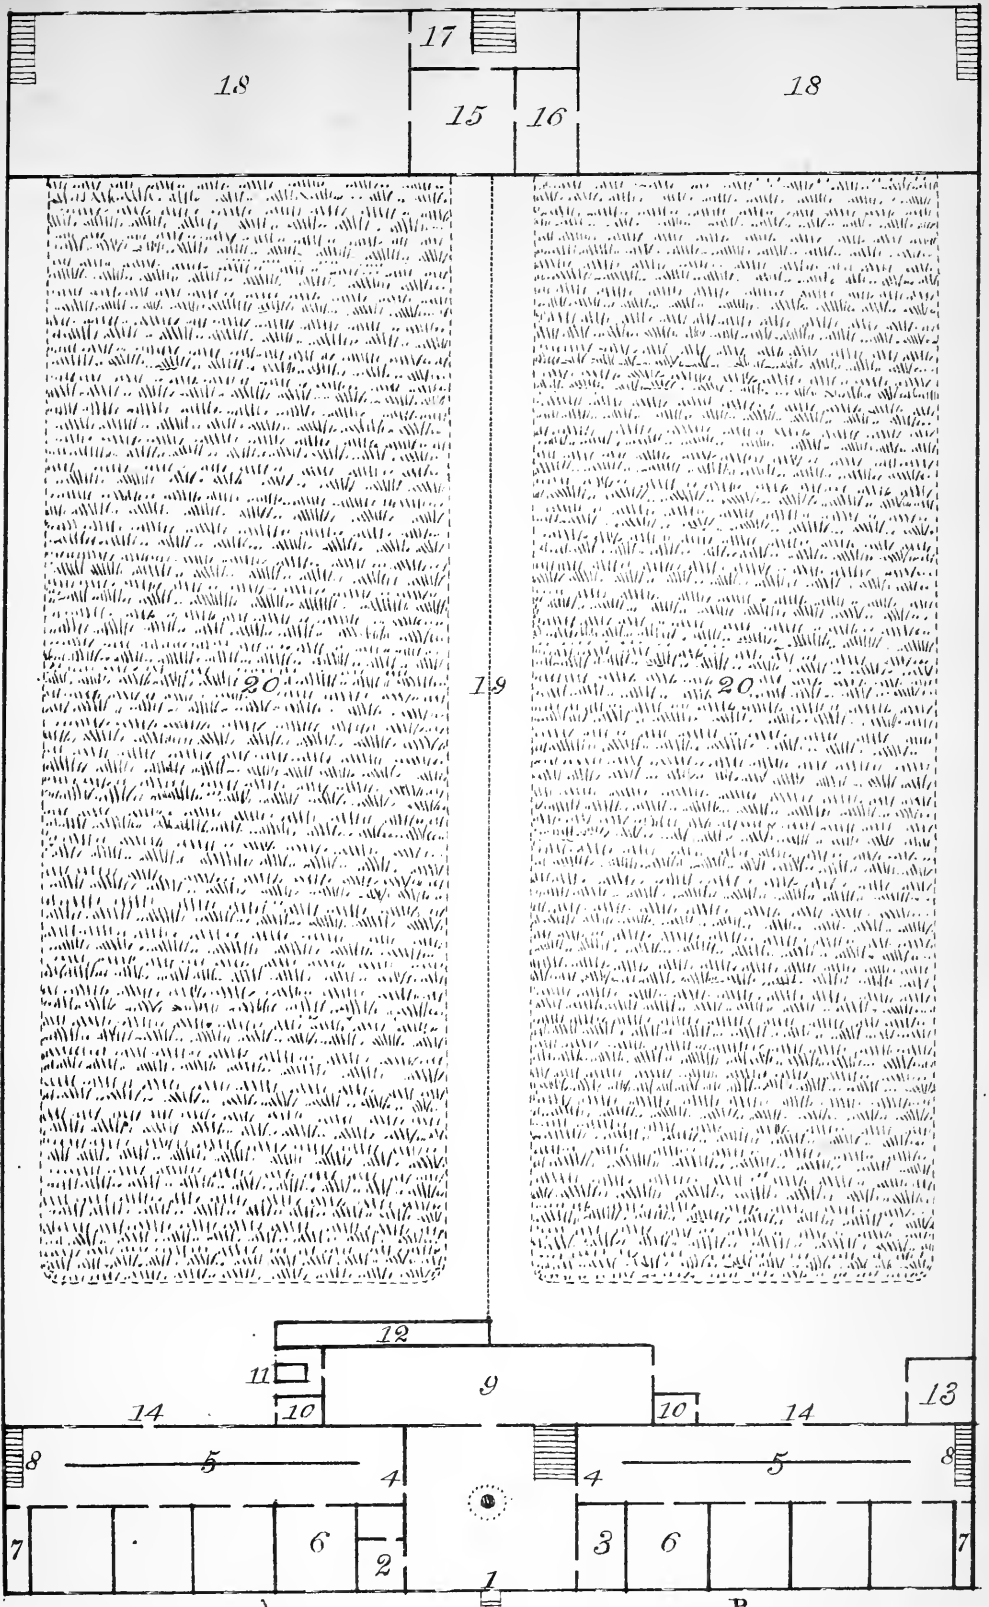 17
18 18
15 16
20 19 20
12
11 9 13
14 10 10 14
8 5 4 4 5 8
7 6 2 3 6 7
1
B